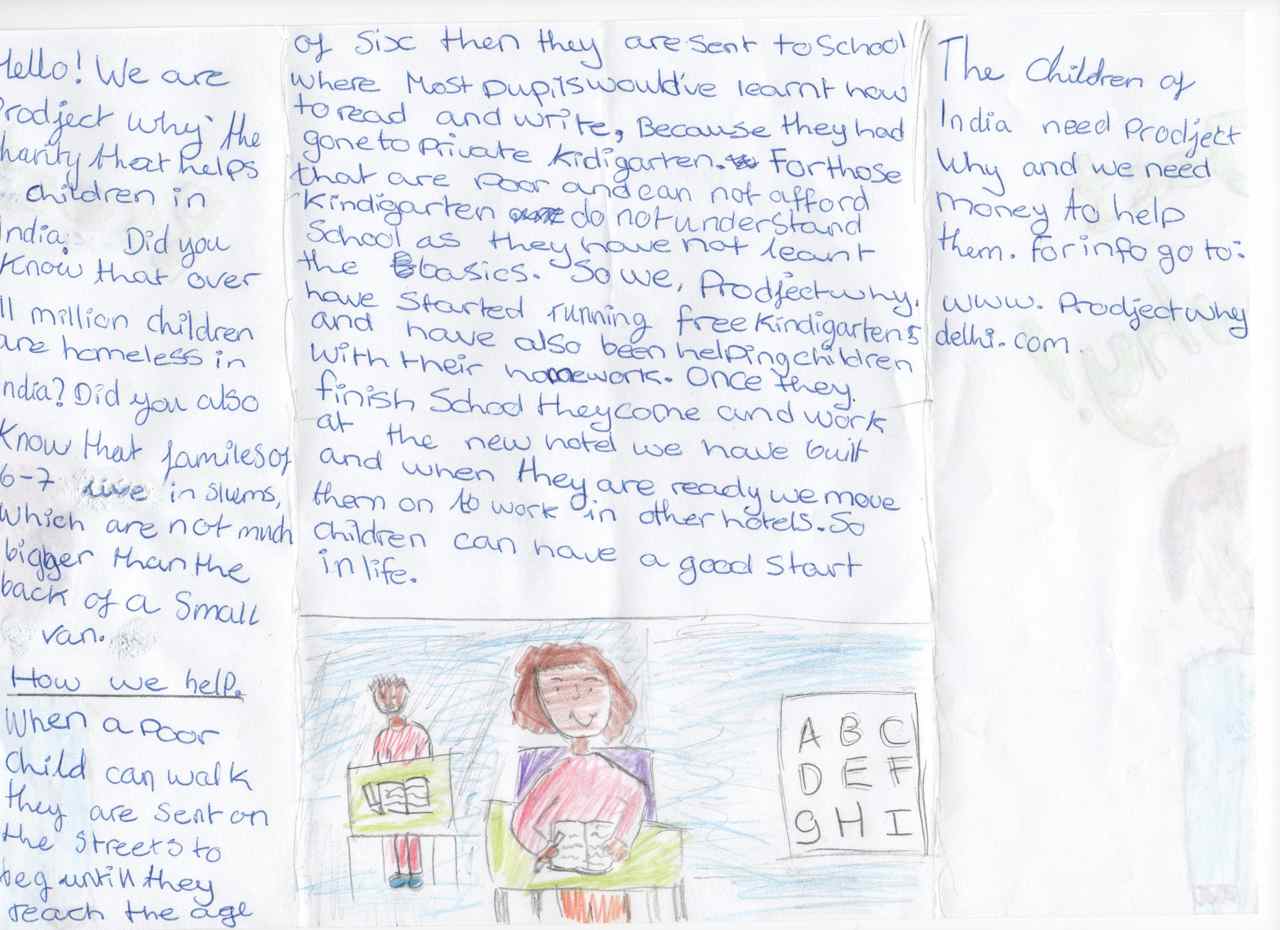 Hello! We are
Prodject Why the
charity that helps
children in
India. Did you
Know that over
11 million children
are homeless in
India? Did you also
Know that familes of
6-7 live in slums,
which are not much
bigger than the
back of a small
van.
How we help.
When a poor
child can walk
they are sent on
the streets to
beg untill they
reach the age
of six then they are sent to School
where Most pupils would've learnt how
to read and write, Because they had
gone to private kidigarten. For those
that are poor and can not afford
kindigarten do not understand
School as they have not learnt
the basics. So we, Prodject why,
have started running free kindigartens
and have also been helping children
with their homework. Once they
finish School they come and work
at the new hotel we have built
and when they are ready we move
them on to work in other hotels. So
children can have a good start
in life.
A B C
D E F
g H I
The Children of
India need Prodject
Why and we need
money to help
them. For info go to:
www. Prodject why
delhi.com.